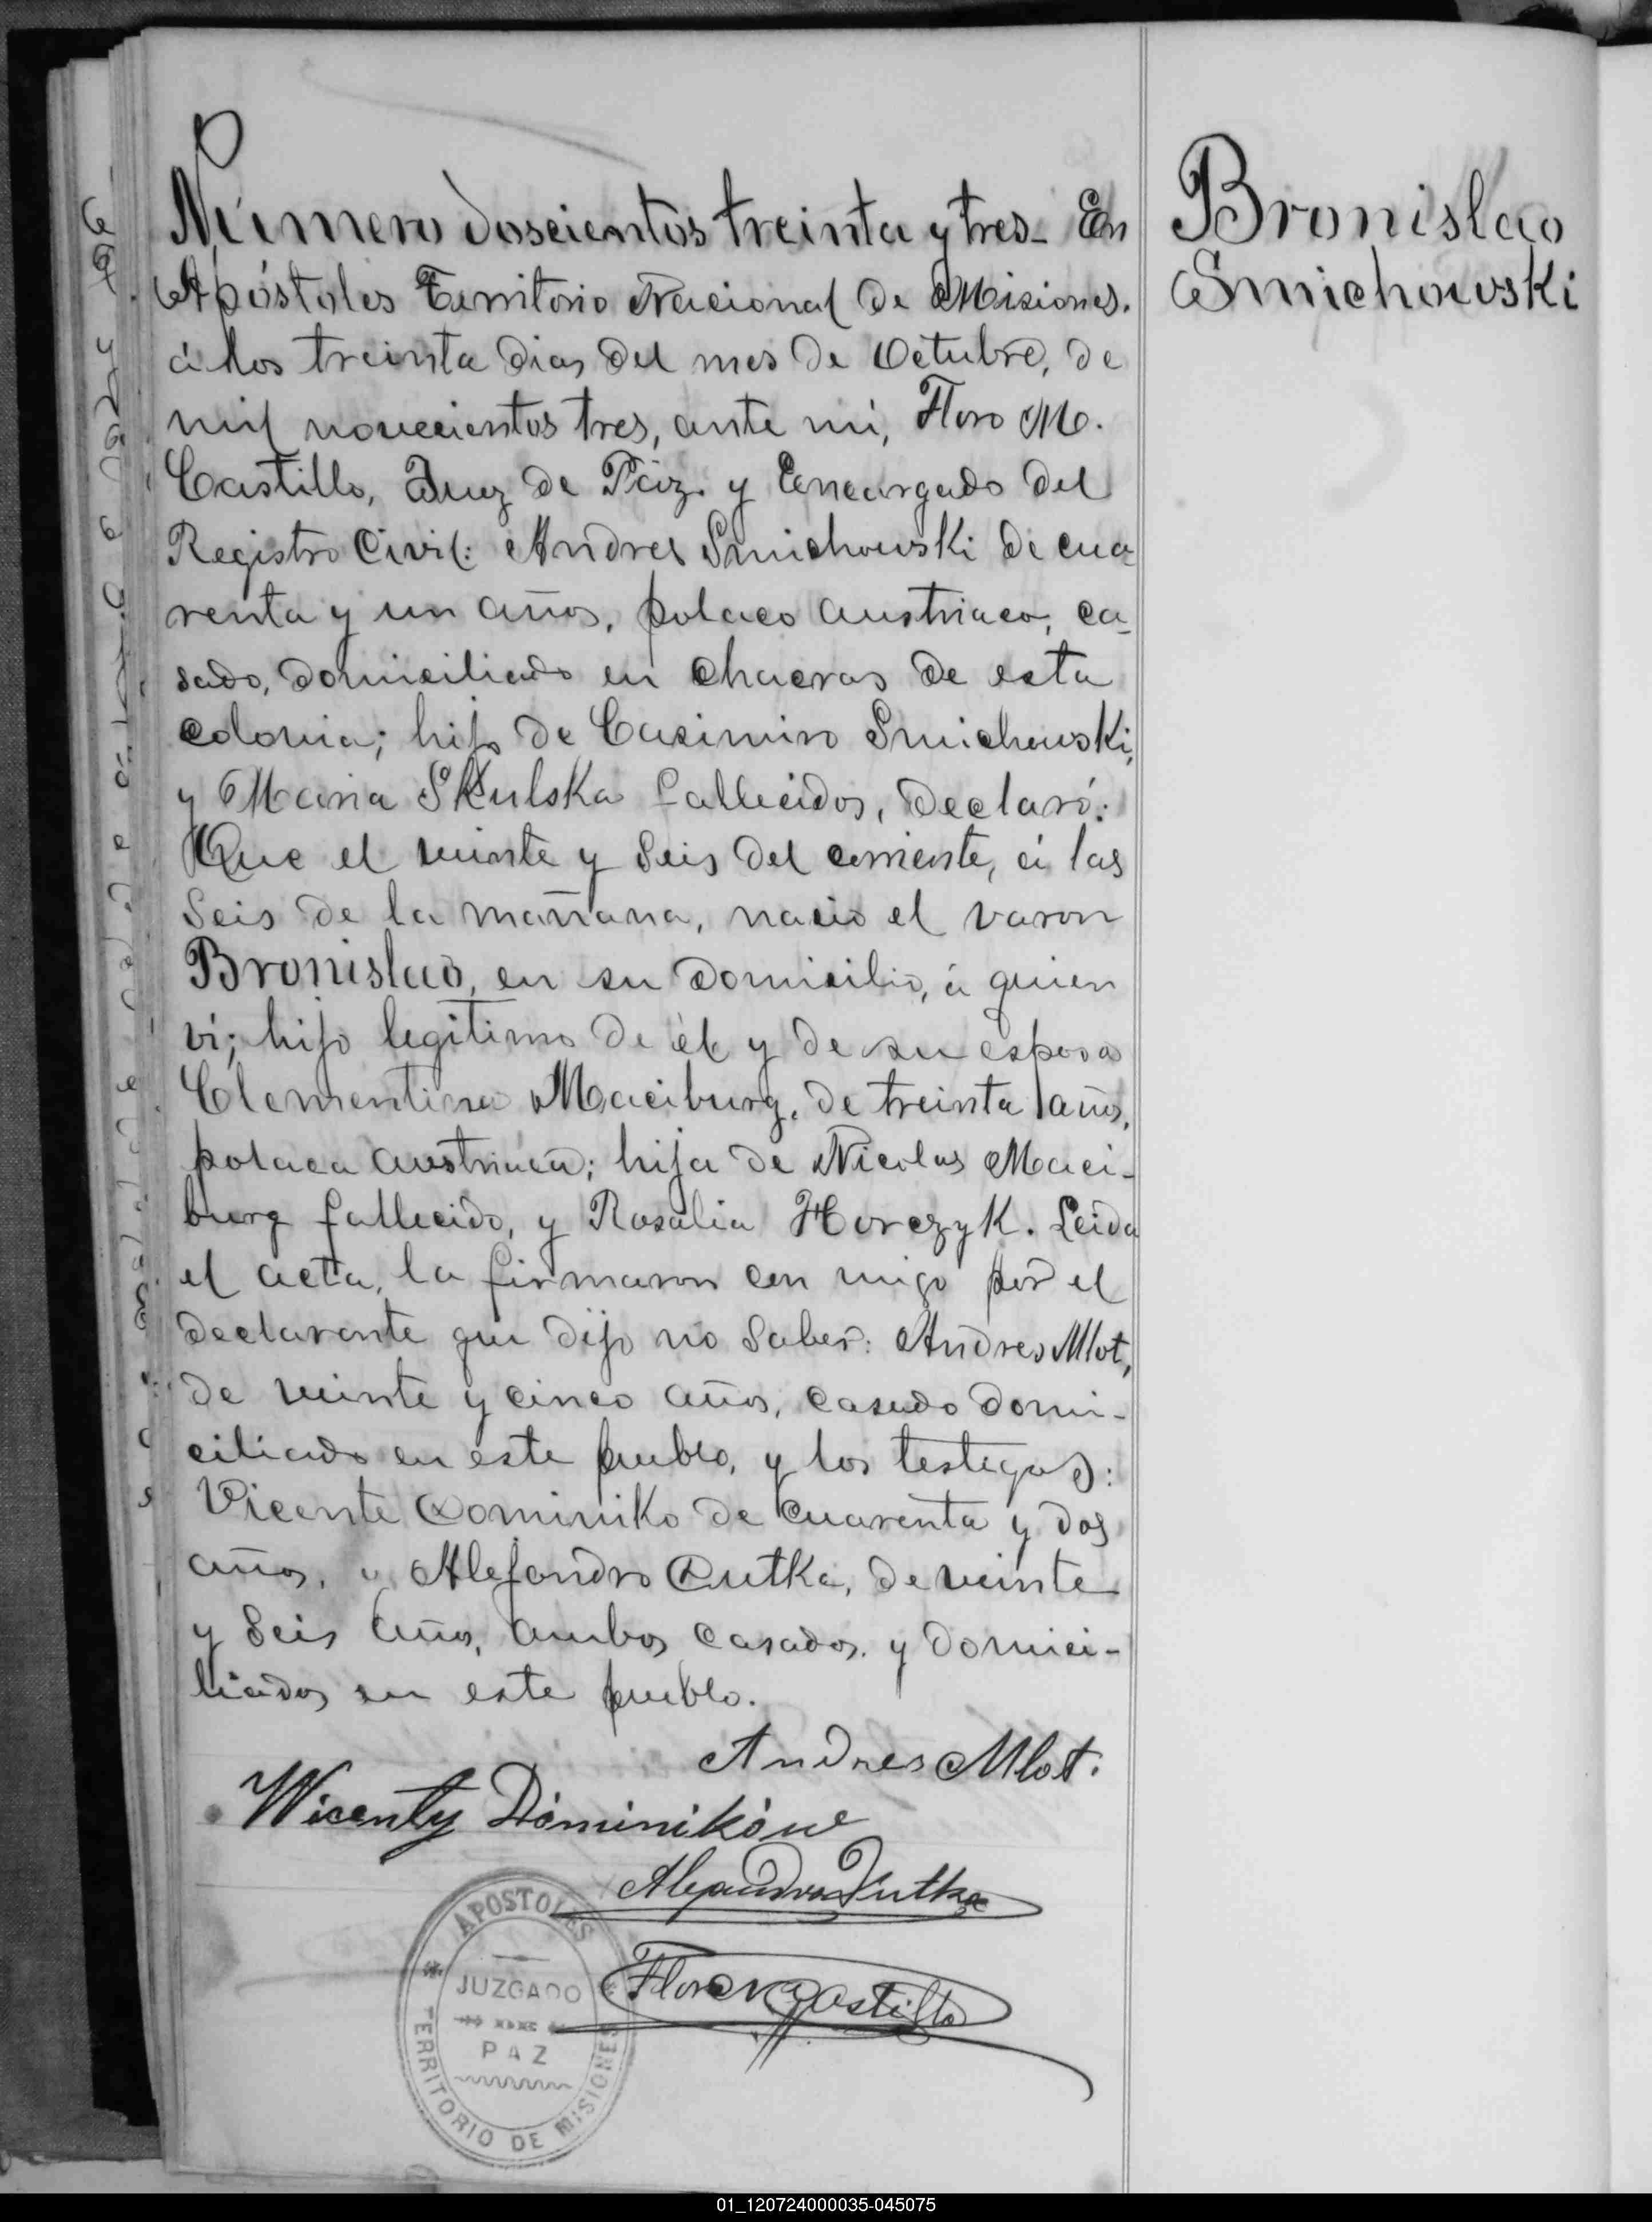 Número doscientos treinta y tres_ En
Apóstoles Territorio Nacional de Misiones.
á los treinta dias del mes de Octubre, de
mil novecientos tres, ante mi, Floro M.
Castillo, Juez de Páz y Encargado del
Registro Civil: Andres Smichowski de cua-
renta y un años, polaco austriaco, ca-
sado, domiciliado en chacras de esta
colonia; hijo de Casimiro Smichowski,
y Maria Skulska fallecidos, declaró:
Que el veinte y seis del corriente, á las
seis de la mañana, nacio el varon
Bronislao, en su domicilio, á quien
ví; hijo legitimo de él y de su esposa
Clementina Maciburg, de treinta años,
polaca austriaca; hija de Nicolas Maci-
burg fallecido, y Rosalia Horczyk. Leida
el acta, la firmaron con migo por el
declarante que dijo no saber: Andres Mlot,
de veinte y cinco años, casado domi-
ciliado en este pueblo, y los testigos:
Vicente Dominiko de cuarenta y dos
años, y Alejandro Rutka, de veinte
y seis años, ambos casados, y domici-
liados en este pueblo.
Andres Mlot.
Wicenty Dominików
Alejandro Rutka
Floro M Castillo
APOSTOLES
JUZGADO
PAZ
TERRITORIO DE MISIONES
Bronislao
Smichowski
01_120724000035-045075